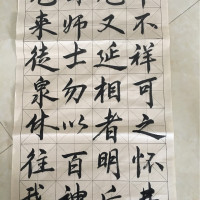 不祥可之怀
又延相者明
师士勿以百神
来徒泉付往我